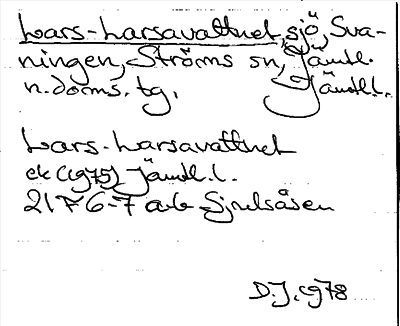 Lars-Larsavattnet, sjö, Sva-
ningen, Ströms sn, Jämtl.
n. doms. tg. Jämtl. l.
Lars-Larsavattnet
ek (1975) Jämtl. l.
21 F 6-7 a-b Sjoutsåsen
D.J. 1978